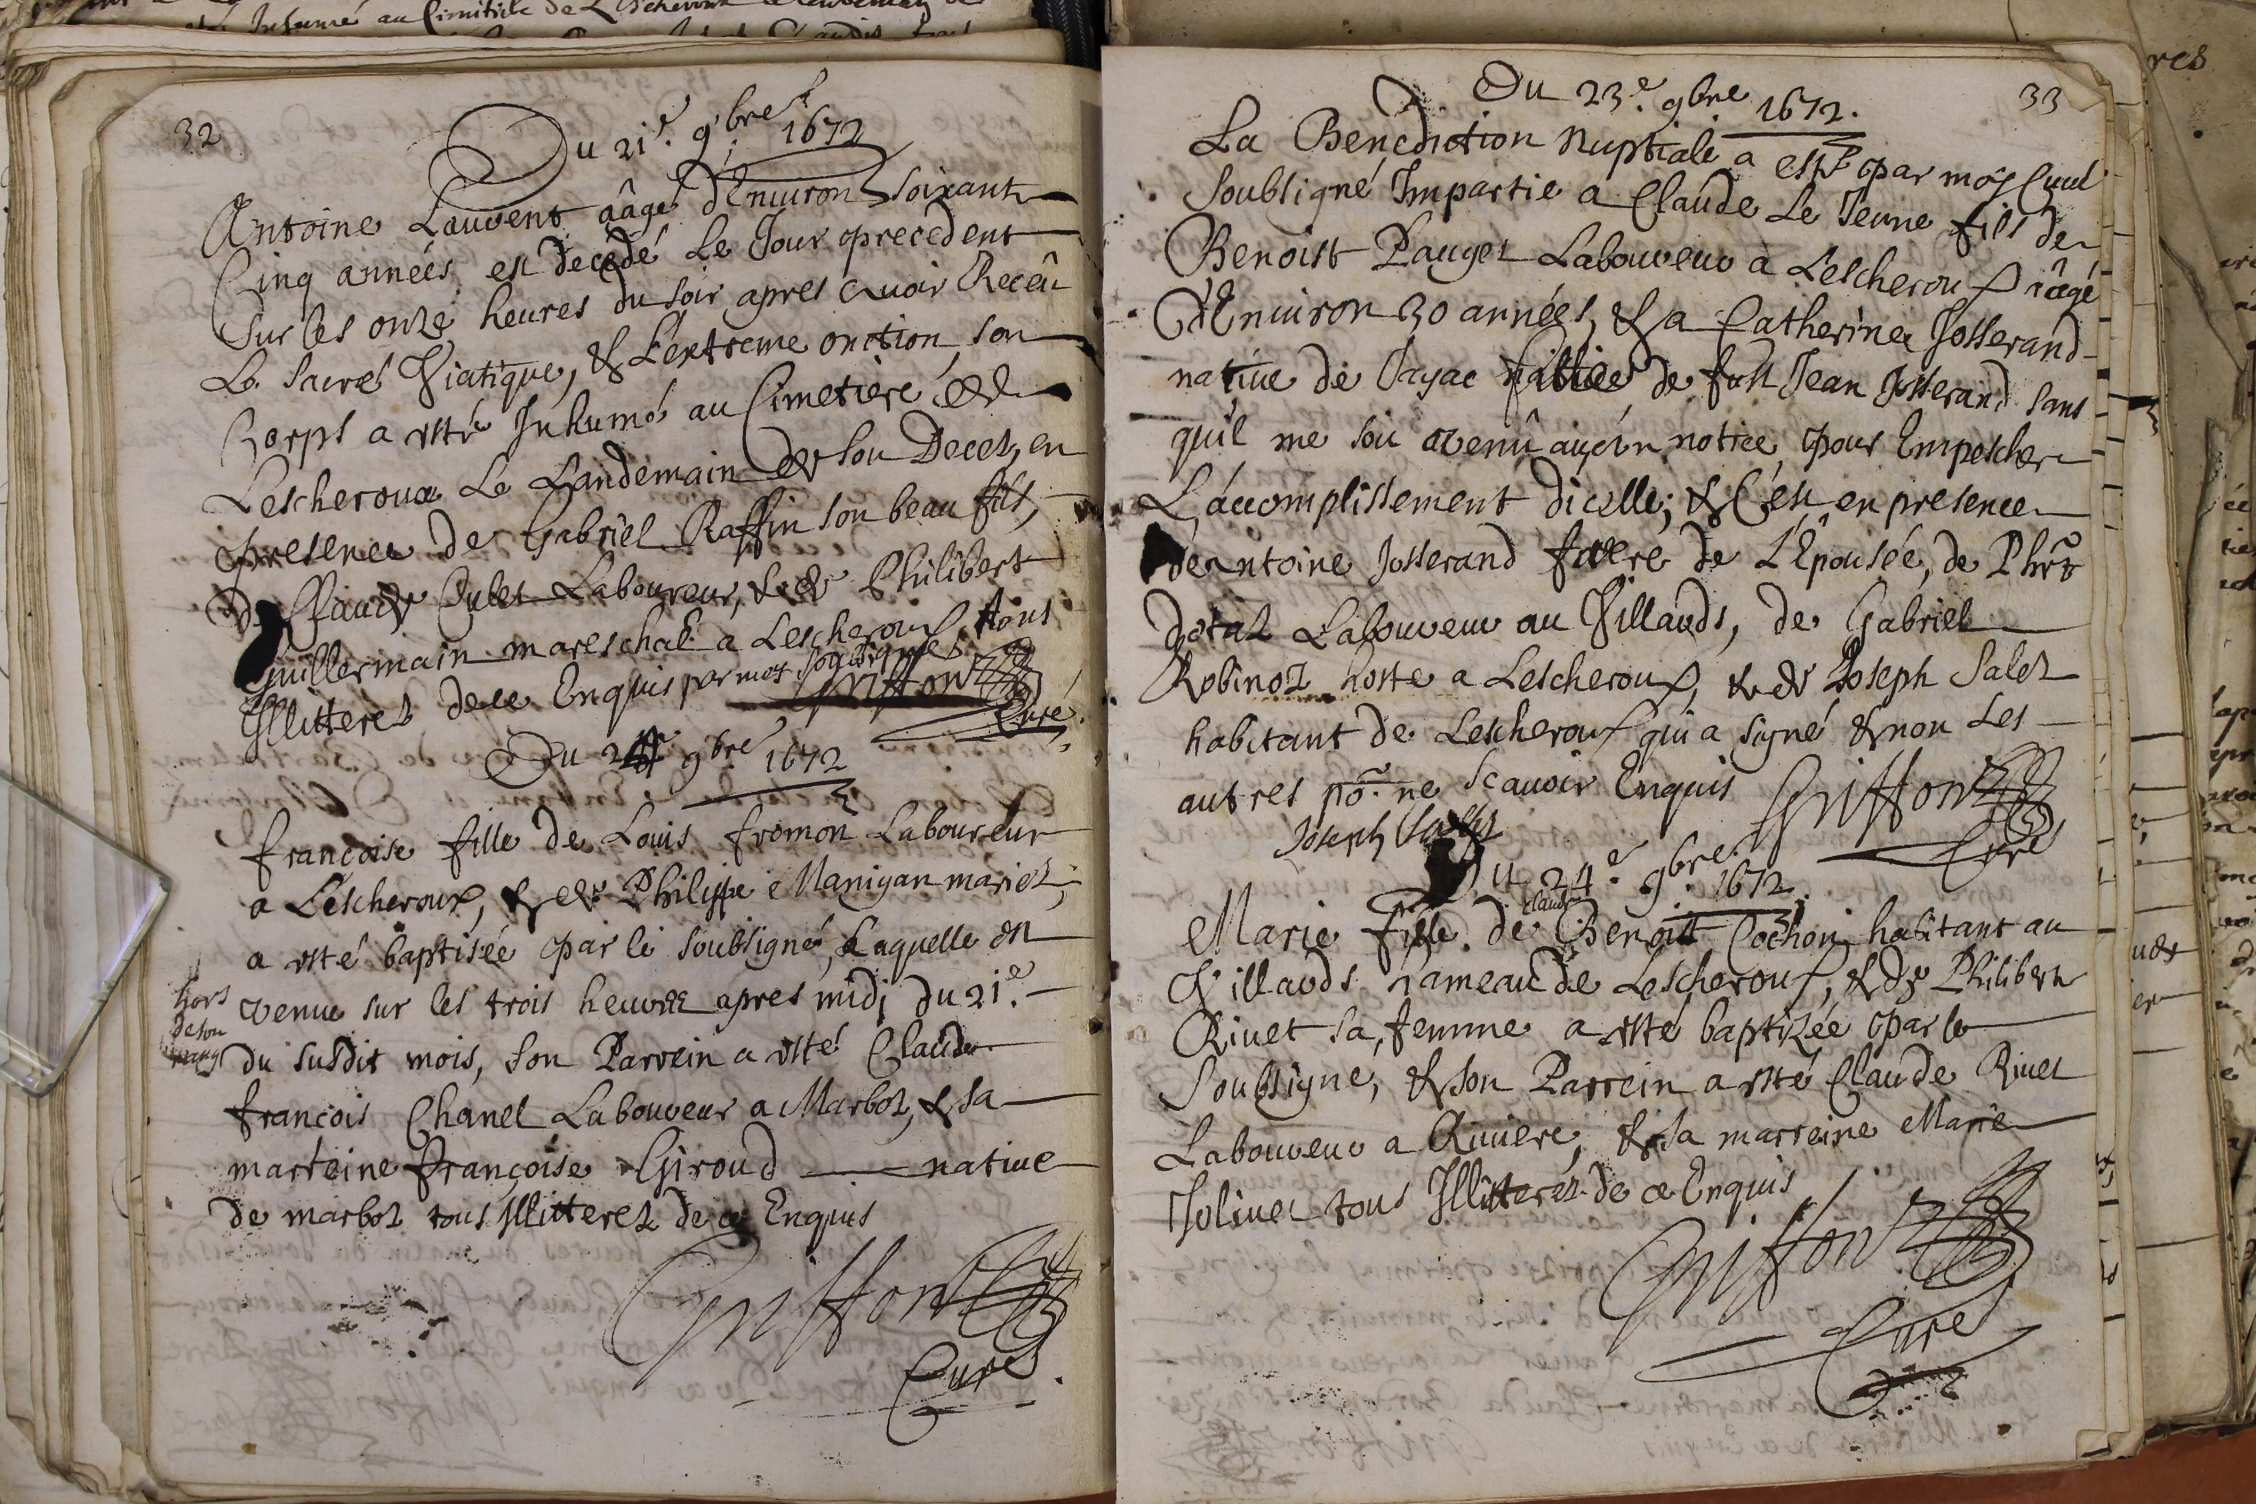 32
Du 21e. 9bre 1672
Antoine Lauvent âagé d'Enuiron soixant
Cinq années est decedé Le Jour precedent
sur les onze heures du soir apres avoir Receû
Le sacré Viatique, & L'extreme onction son
Corps a esté Inhumé au Cimetiere de
Lescheroux Le Landemain de son Decez, en
presence de Gabriel Raffin son beau fils,
de Claude Laboureur, & de Philibert
Guillermain mareschal a Lescheroux tous
Illitterez de ce Enquis par moy soubsigné
Griffon
Curé
Du 9bre 1672
françoise fille de Louis fromon Laboureur
a Lescheroux, & de Philippe Manigan mariez,
a esté baptisée par le soubsigné, Laquelle est
venue sur les trois heures apres midi du 21e.
hors
de son
rang
du susdit mois, son Parrein a esté Claude
françois Chanel Laboureur a Marboz, & sa
marreine françoise Giroud natiue
de marboz tous Illitterez de ce Enquis
Griffon
Curé
33
Du 23e. 9bre 1672.
La Benediction nuptiale a esté par moy Curé
soubsigné Impartie a Claude Le Jeune fils de
Benoist Pauget Laboureur à Lescheroux âgé
d'Enuiron 30 années, & a Catherine Josserand
natiue de Jayac fille de fut Jean Josserand sans
qu'il me soit venû aucun notice pour Empescher
L'accomplissement d'icelle; & C'est en presence
de antoine Josserand frere de L'Epousée, de Phrt
Laboureur au Villards, de Gabriel
Robinoz hoste a Lescheroux, & de Joseph Salez
habitant de Lescheroux qui a signé & non Les
autres po. ne sçauoir Enquis
Griffon
Joseph Salez
Curé
Du 24e. 9bre 1672.
Claude
Marie fille de Benoit Cochon habitant au
Villards hameau de Lescheroux, & de Philiberte
Riuet sa femme a esté baptizée par le
soubsigne, & son Parrein a esté Claude Riuet
Laboureur a Riuiere, & sa marreine Marie
Joliuet tous Illitterez de ce Enquis
Griffon
Curé